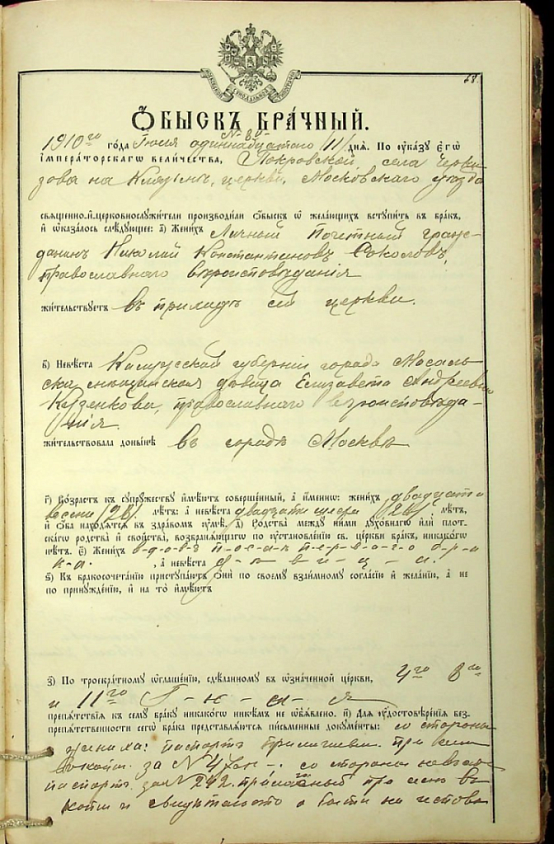 ОБЫСКЪ БРАЧНЫЙ.
№ 80
1910го года Июля одиннадцатаго /11/ дня. По ѹказу єгѡ
імператорскагѡ величества, Покровской, села Черки-
зова на Клязьмѣ, церкви, Московскаго уѣзда
священно-и-церковнослужители производили ѡбыскъ ѡ желающихъ вступить въ бракъ,
и ѡказалось слѣдующее: а) Женихъ Личный Почетный граж-
данинъ Николай Константиновъ Соколовъ,
православнаго вѣроисповѣданія
жительствуетъ въ приходѣ сей церкви.
б) Невѣста Калужской губерніи города Мосаль-
ска мещанская дѣвица Елизавета Андреевна
православнаго вѣроисповѣда-
нія.
жительствовала донынѣ въ городѣ Москвѣ
г) Возрастъ къ супружеству имѣютъ совершенный, а именнѡ: женихъ двадцати
восьми /28/ лѣтъ, а невѣста двадцати шести /26/ лѣтъ,
и ѡба находятся въ здравомъ ѹмѣ. д) Родства между ними духовнагѡ или плот-
скагѡ родства и свойства, возбраняющагѡ по ѹстановленію св. церкви бракъ, никакогѡ
нѣтъ. є) Женихъ в-д-о-в-ъ п-о-с-л-ѣ п-е-р-в-а-г-о б-р-а-
к-а. , а невѣста д-ѣ-в-и-ц-а.
ѕ) Въ бракосочетанію приступаютъ ѡни по своему взаимному согласію и желанію, а не
по принужденію, и на то имѣютъ
з) По троекратному ѡглашенію, сдѣланному въ ѡзначенной церкви, 4го 8го
и 11го І-ю-л-я
препятствія къ сему браку никакогѡ никѣмъ не ѡбъявлено. и) Для ѹдостовѣренія без-
препятственности сегѡ брака представляются письменные документы: со стороны
жениха: паспортъ при семъ
за № со стороны невѣсты
паспортъ за № 242 при семъ
и свидѣтельство о бытіи на исповѣ-